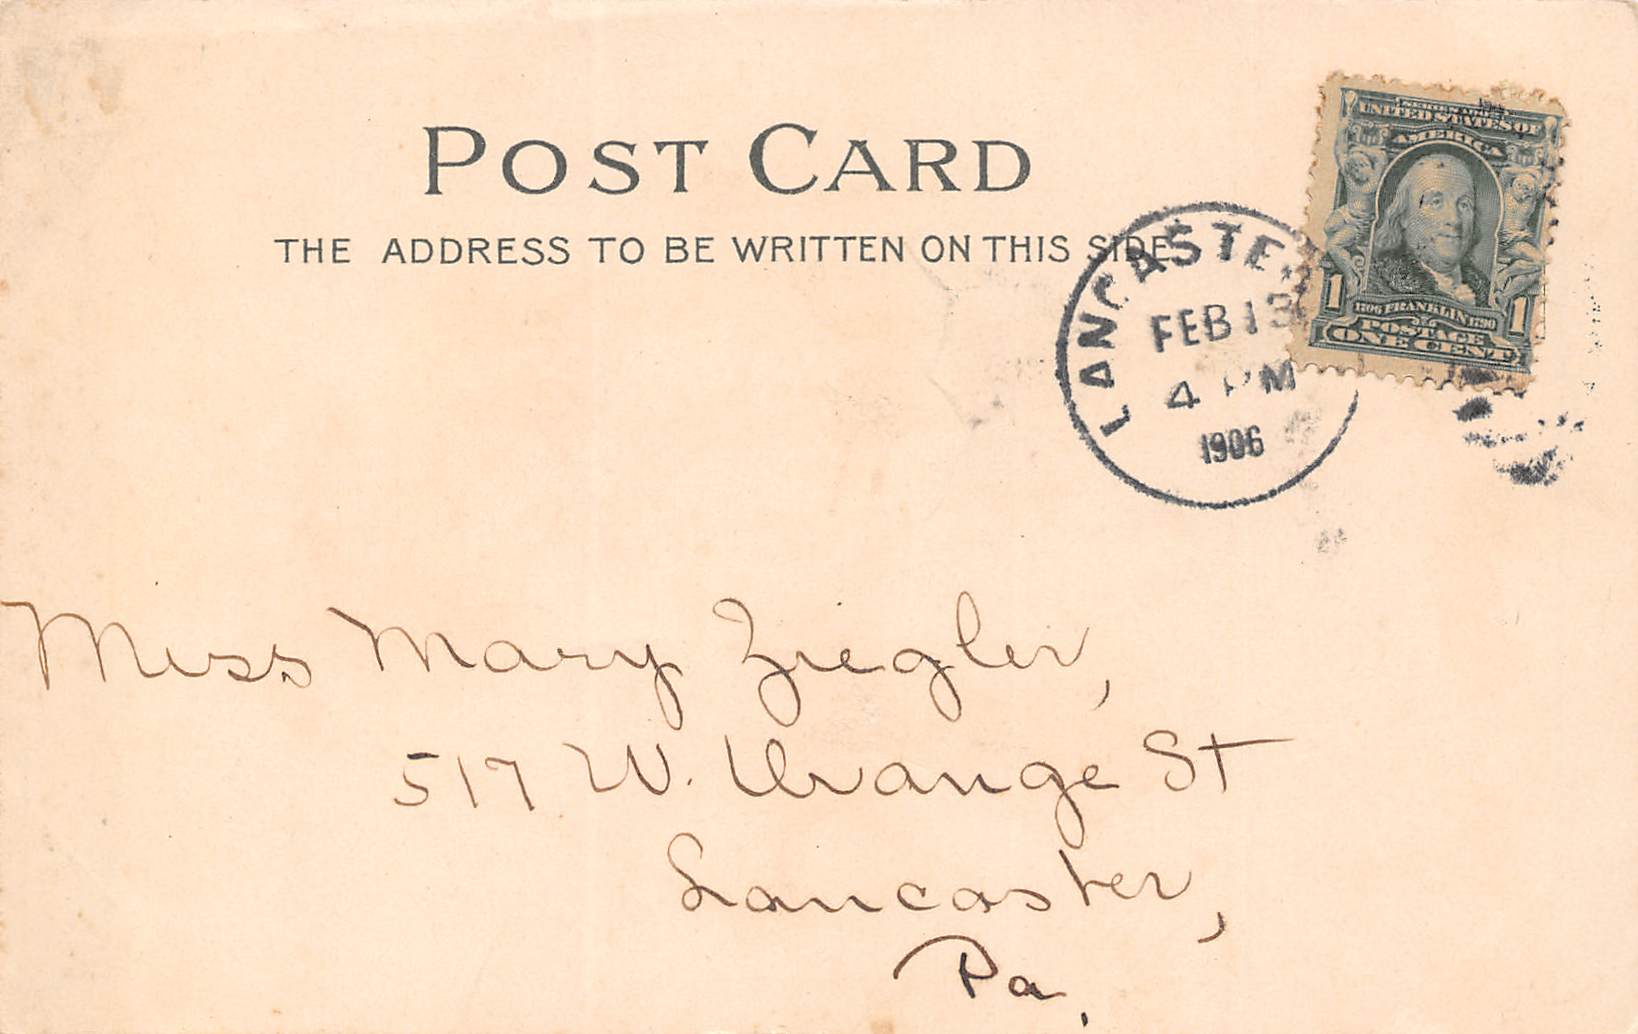 POST CARD
THE ADDRESS TO BE WRITTEN ON THIS SIDE
SERIES 1902
UNITED STATES OF
AMERICA
1 1706 FRANKLIN 1790 1
POSTAGE
ONE CENT
LANCASTER
FEB 13
4 PM
1906
Miss Mary Ziegler,
517 W. Orange St
Lancaster,
Pa.